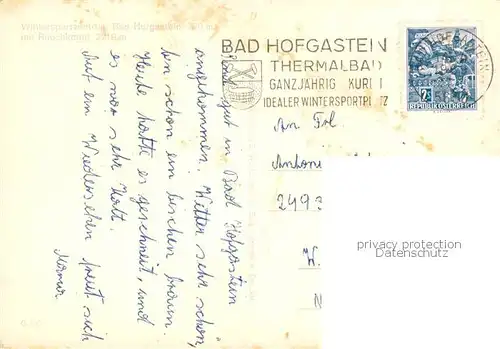 Wintersportzentrum Bad Hofgastein, 870 m
BAD HOFGASTEIN
THERMALBAD
GANZJÄHRIG KUR
IDEALER WINTERSPORTPL TZ
REPUBLIK ÖSTERREICH
gut in Bad Hofgastein
angekommen. Wetter sehr schön,
bin schon ein bischen braun.
Heute hatte es geschneit, und
es war sehr kalt.
Auf ein Wiedersehen freut sich
Mama
An Frl.
Antoni
2493
W.
N
privacy protection
Datenschutz